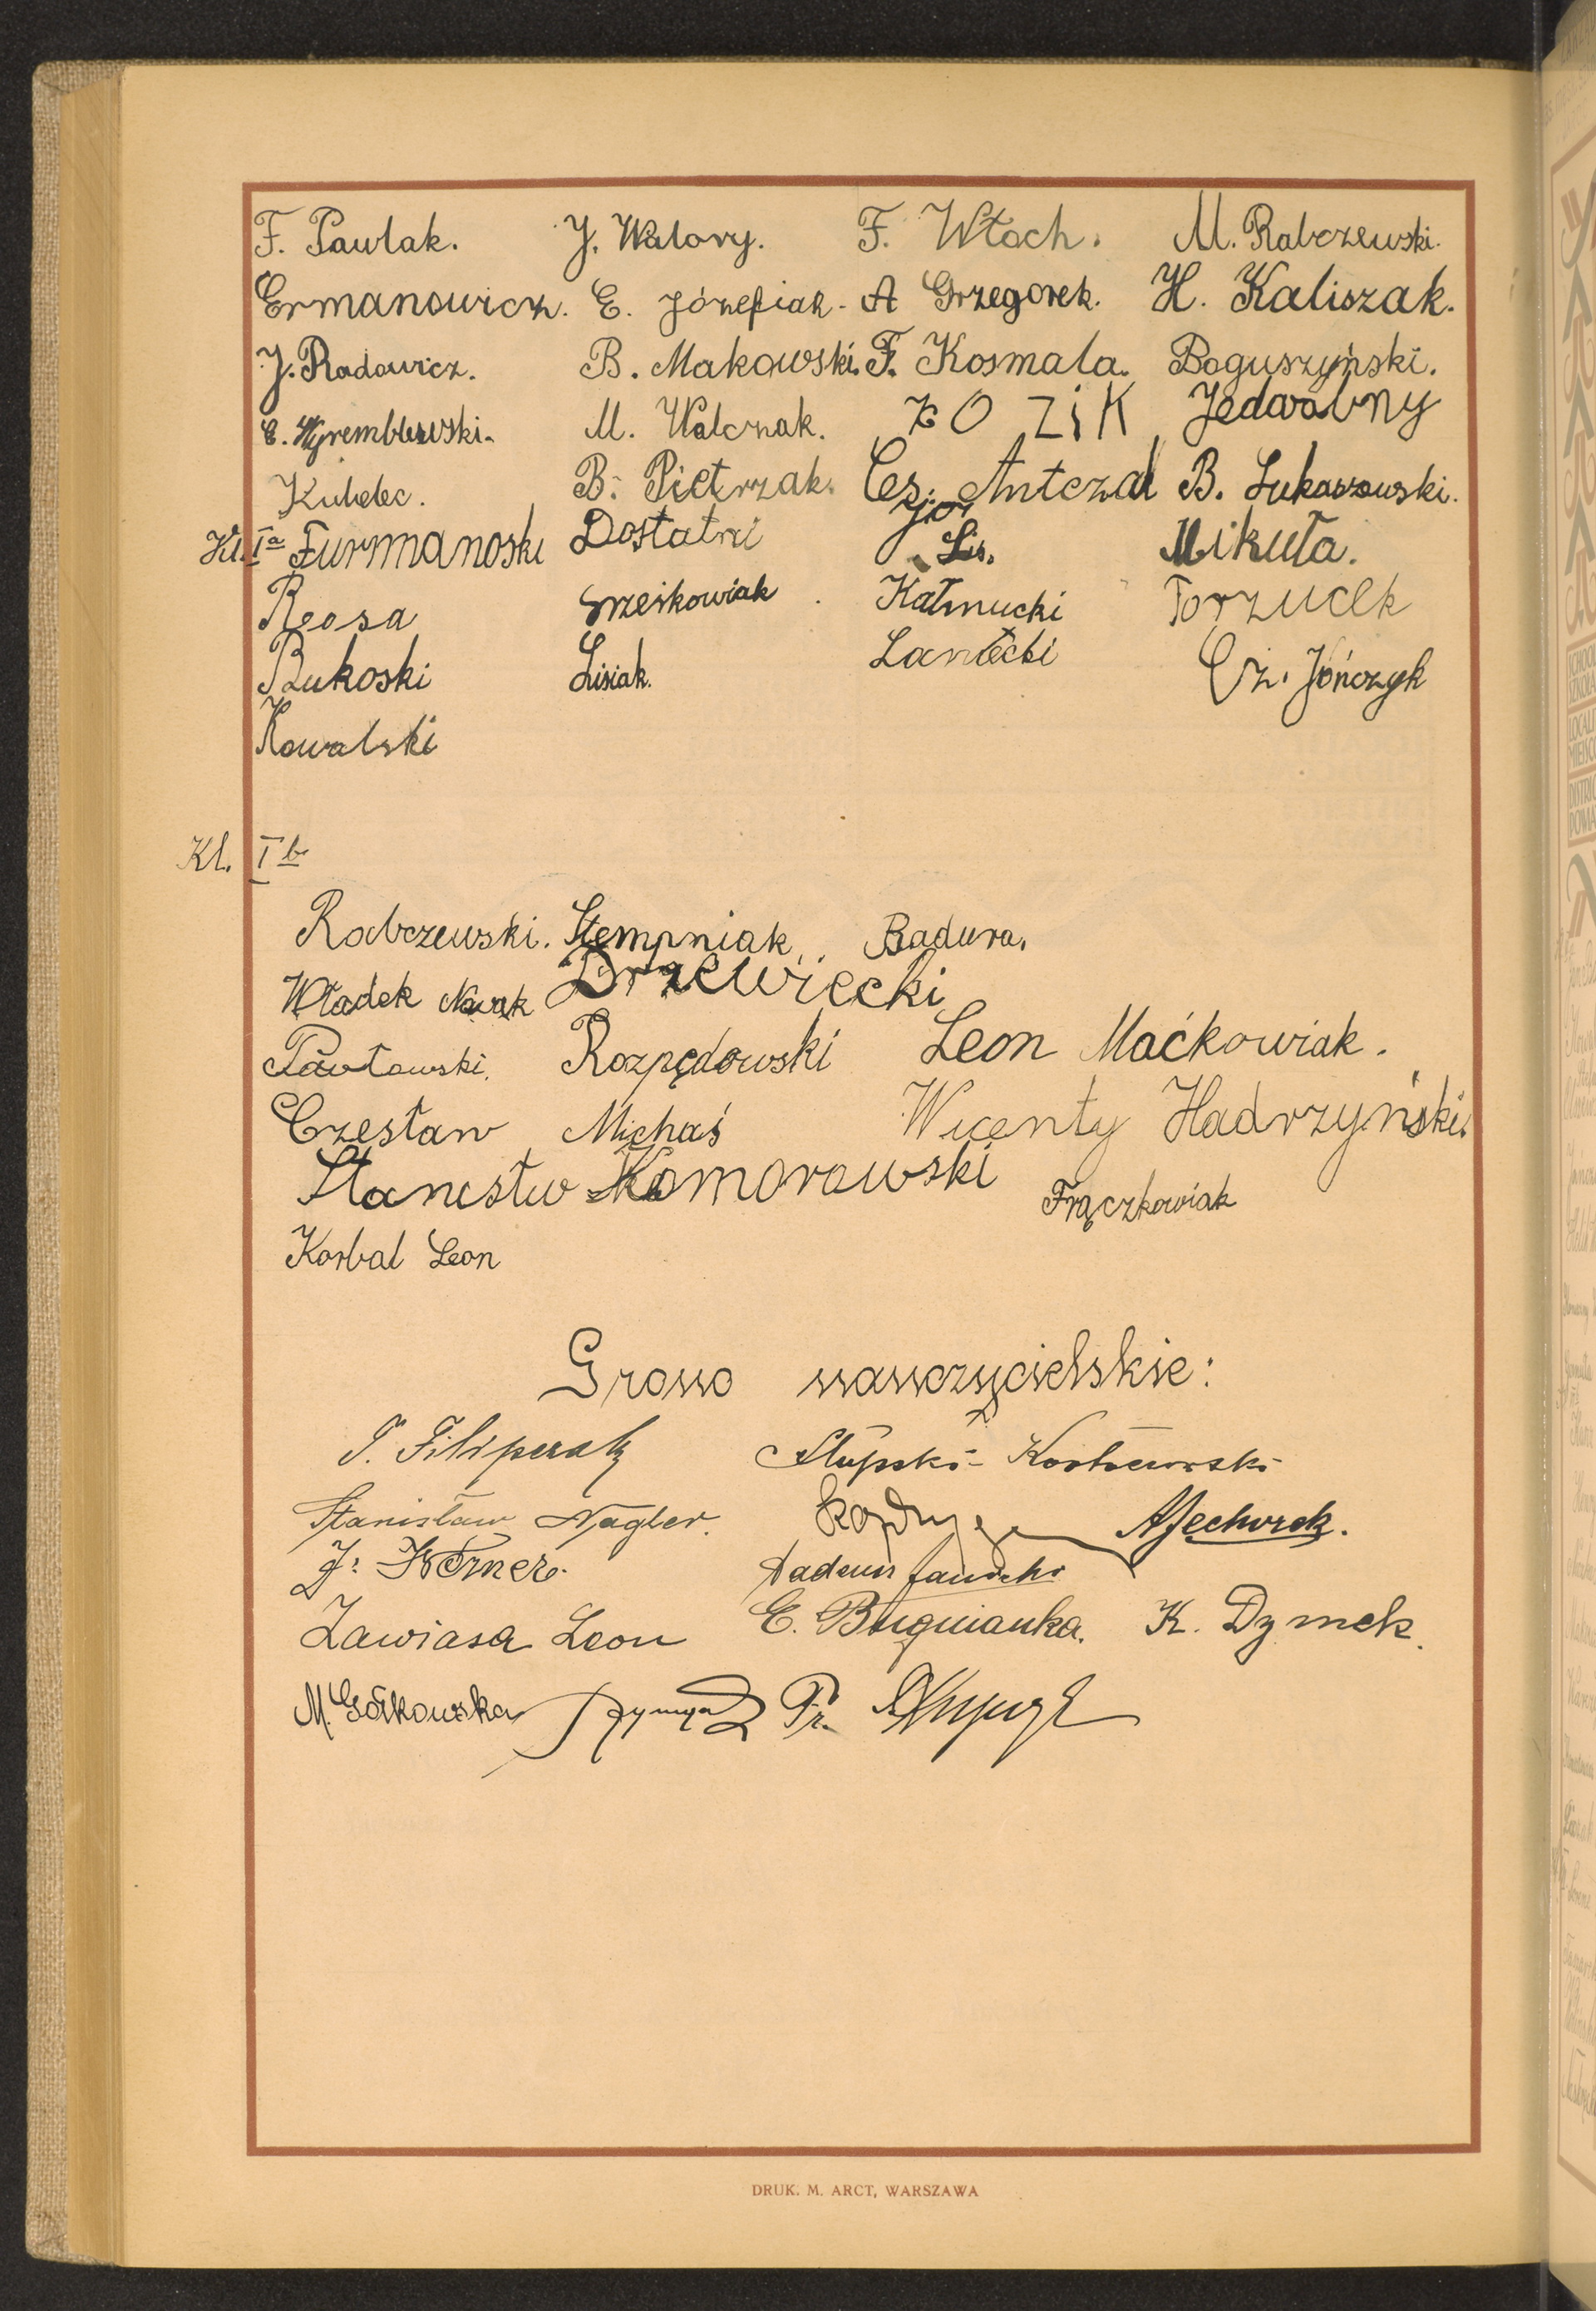 F. Pawlak. J. Walory. F. Włoch. M. Rabczewski.
Ermanowicz. E. Józefiak. A Grzegorek. H. Kaliszak.
J. Radowicz. B. Makowski. F. Kosmala. Boguszyński.
C. Wyremblewski. M. Walczak. KOZiK Jedwabny
Kubelec. B. Pietrzak. Cz. Antczak B. Łukaszowski.
Kl. Ia Furmanoski Dostatni Lis. Mikuła.
Reosa Grześkowiak Kałmucki Torzucek
Bukoski Lisiak. Łanecki Cz. Jończyk
Kowalski
Kl. Ib
Rabczewski. Stempniak Badura.
Władek Nowak Drzewiecki
Pawłowski. Rozpędowski Leon Maćkowiak.
Czesław Michaś Wicenty Hadrzyński.
Stanistw Komorowski Frączkowiak
Korbal Leon
Grono nauczycielskie:
Słupski Kostrzewski
Stanisław Nagler.
J. Körner.
Zawiasa Leon K. Dymek.
M. Gółkowska Pr.
DRUK. M. ARCT, WARSZAWA